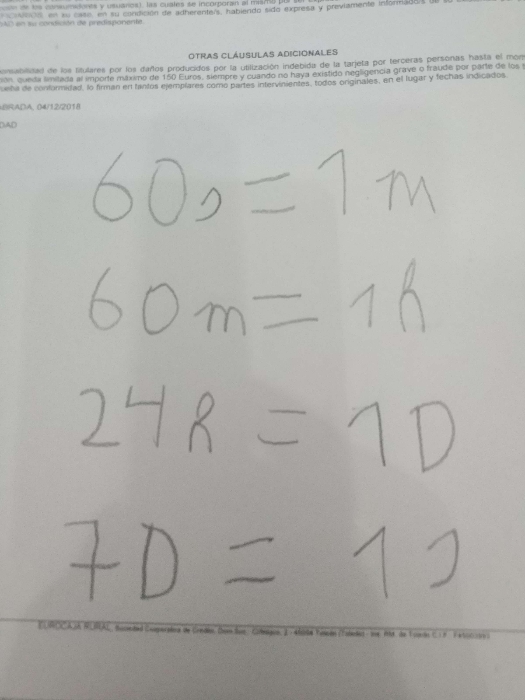 de los consumidores y usuarios), las cuales se incorporan al mismo
en su caso, en su condición de adherente/s, habiendo sido expresa y previamente informado/s de su
en su condición de predisponente.
OTRAS CLÁUSULAS ADICIONALES
de los titulares por los daños producidos por la utilización indebida de la tarjeta por terceras personas hasta el
queda limitada al importe máximo de 150 Euros, siempre y cuando no haya existido negligencia grave o fraude por parte de los
de conformidad, lo firman en tantos ejemplares como partes intervinientes, todos originales, en el lugar y fechas indicados.
04/12/2018
DAD
60s = 1 m
60 m = 1h
24h = 1D
7D = 1s
EUROCAJA RURAL, Sociedad Cooperativa de Crédito